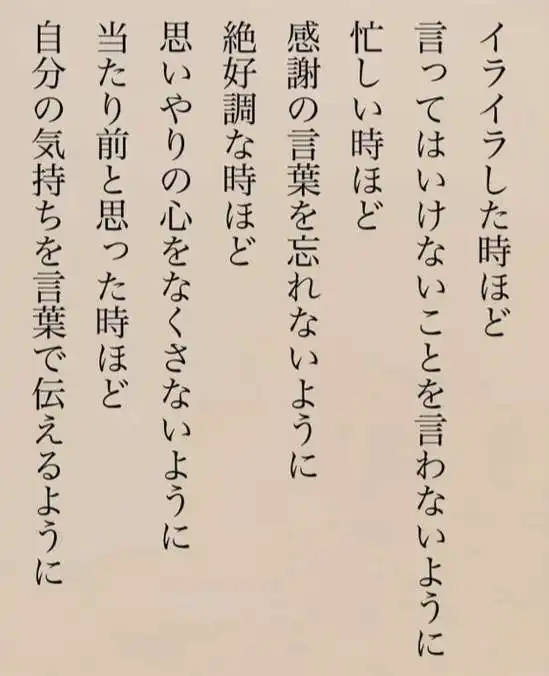 イライラした時ほど
言ってはいけないことを言わないように
忙しい時ほど
感謝の言葉を忘れないように
絶好調な時ほど
思いやりの心をなくさないように
当たり前と思った時ほど
自分の気持ちを言葉で伝えるように